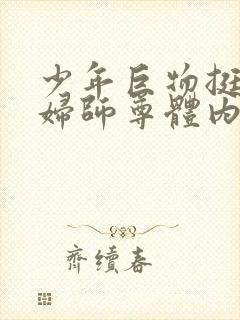 少年巨物挺
婦師尊體內
齊續春